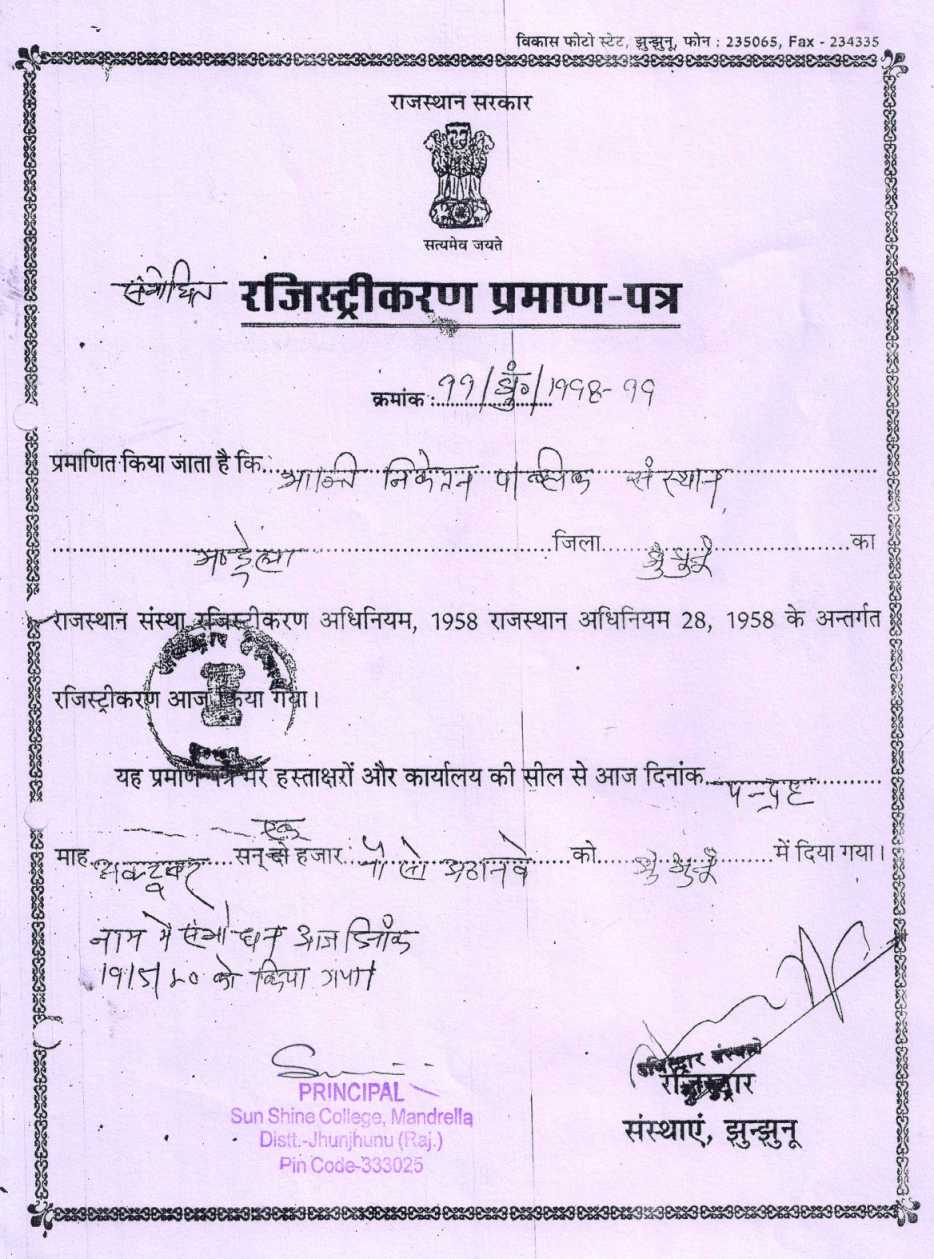 विकास फोटो स्टेट, झुन्झुनू, फोन : 235065, Fax - 234335
राजस्थान सरकार
सत्यमेव जयते
संशोधित रजिस्ट्रीकरण प्रमाण-पत्र
क्रमांक : 99/झुं0/1998-99
प्रमाणित किया जाता है कि शान्ति निकेतन पब्लिक संस्थान
मण्ड्रेला जिला झुंझुनूं का
राजस्थान संस्था रजिस्ट्रीकरण अधिनियम, 1958 राजस्थान अधिनियम 28, 1958 के अन्तर्गत
रजिस्ट्रीकरण आज किया गया।
यह प्रमाण-पत्र मेरे हस्ताक्षरों और कार्यालय की सील से आज दिनांक पन्द्रह
माह अक्टूबर सन् एक हजार नौ सौ अठानवे को झुंझुनूं में दिया गया।
नाम में संशोधन आज दिनांक
को किया गया।
PRINCIPAL
Sun Shine College, Mandrella
Distt.-Jhunjhunu (Raj.)
Pin Code-333025
रजिस्ट्रार संस्थाएं
रजिस्ट्रार
संस्थाएं, झुन्झुनू